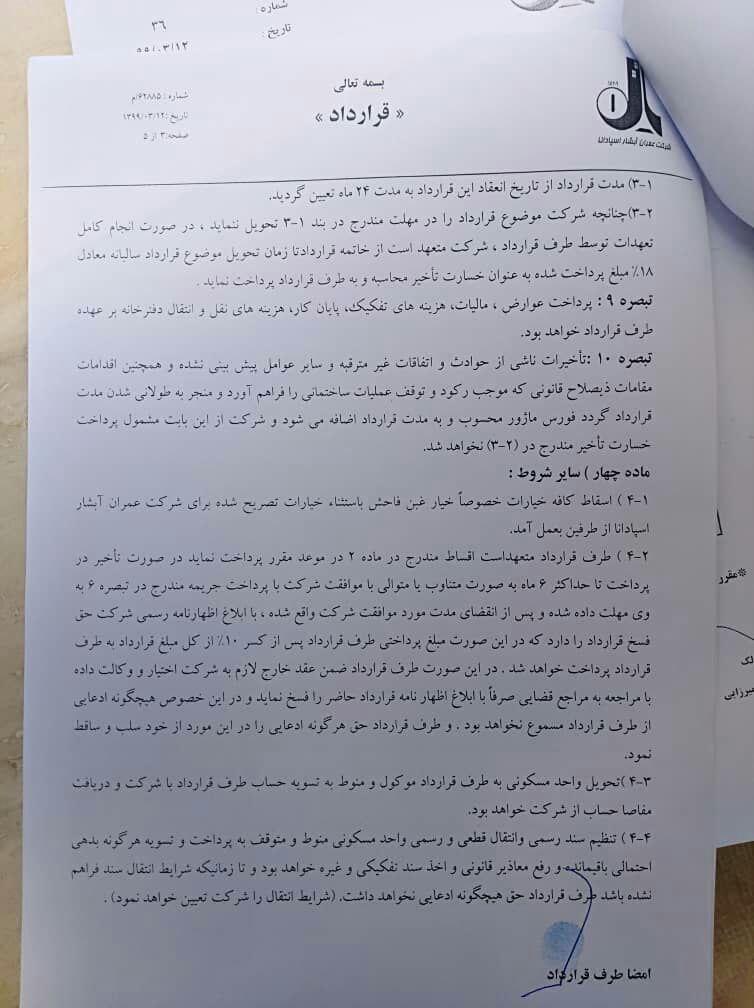 شماره :
۳۶
تاریخ :
بسمه تعالی
« قرارداد »
شماره : ۶۲۸۸۵/م
تاریخ : ۱۳۹۹/۰۳/۱۲
صفحه: ۳ از ۵
شرکت عمران آبشار اسپادانا
۳-۱) مدت قرارداد از تاریخ انعقاد این قرارداد به مدت ۲۴ ماه تعیین گردید.
۳-۲)چنانچه شرکت موضوع قرارداد را در مهلت مندرج در بند ۱-۳ تحویل ننماید ، در صورت انجام کامل
تعهدات توسط طرف قرارداد ، شرکت متعهد است از خاتمه قراردادتا زمان تحویل موضوع قرارداد سالیانه معادل
۱۸٪ مبلغ پرداخت شده به عنوان خسارت تأخیر محاسبه و به طرف قرارداد پرداخت نماید .
تبصره ۹ : پرداخت عوارض ، مالیات، هزینه های تفکیک، پایان کار، هزینه های نقل و انتقال دفترخانه بر عهده
طرف قرارداد خواهد بود.
تبصره ۱۰ :تأخیرات ناشی از حوادث و اتفاقات غیر مترقبه و سایر عوامل پیش بینی نشده و همچنین اقدامات
مقامات ذیصلاح قانونی که موجب رکود و توقف عملیات ساختمانی را فراهم آورد و منجر به طولانی شدن مدت
قرارداد گردد فورس ماژور محسوب و به مدت قرارداد اضافه می شود و شرکت از این بابت مشمول پرداخت
خسارت تأخیر مندرج در (۲-۳) نخواهد شد.
ماده چهار ) سایر شروط :
۴-۱ ) اسقاط کافه خیارات خصوصاً خیار غبن فاحش باستثناء خیارات تصریح شده برای شرکت عمران آبشار
اسپادانا از طرفین بعمل آمد.
۴-۲ ) طرف قرارداد متعهداست اقساط مندرج در ماده ۲ در موعد مقرر پرداخت نماید در صورت تأخیر در
پرداخت تا حداکثر ۶ ماه به صورت متناوب یا متوالی با موافقت شرکت با پرداخت جریمه مندرج در تبصره ۶ به
وی مهلت داده شده و پس از انقضای مدت مورد موافقت شرکت واقع شده ، با ابلاغ اظهارنامه رسمی شرکت حق
فسخ قرارداد را دارد که در این صورت مبلغ پرداختی طرف قرارداد پس از کسر ۱۰٪ از کل مبلغ قرارداد به طرف
قرارداد پرداخت خواهد شد . در این صورت طرف قرارداد ضمن عقد خارج لازم به شرکت اختیار و وکالت داده
با مراجعه به مراجع قضایی صرفاً با ابلاغ اظهار نامه قرارداد حاضر را فسخ نماید و در این خصوص هیچگونه ادعایی
از طرف قرارداد مسموع نخواهد بود . و طرف قرارداد حق هرگونه ادعایی را در این مورد از خود سلب و ساقط
نمود.
۴-۳ )تحویل واحد مسکونی به طرف قرارداد موکول و منوط به تسویه حساب طرف قرارداد با شرکت و دریافت
مفاصا حساب از شرکت خواهد بود.
۴-۴ ) تنظیم سند رسمی وانتقال قطعی و رسمی واحد مسکونی منوط و متوقف به پرداخت و تسویه هرگونه بدهی
احتمالی باقیمانده و رفع معاذیر قانونی و اخذ سند تفکیکی و غیره خواهد بود و تا زمانیکه شرایط انتقال سند فراهم
نشده باشد طرف قرارداد حق هیچگونه ادعایی نخواهد داشت. (شرایط انتقال را شرکت تعیین خواهد نمود) .
امضا طرف قرارداد